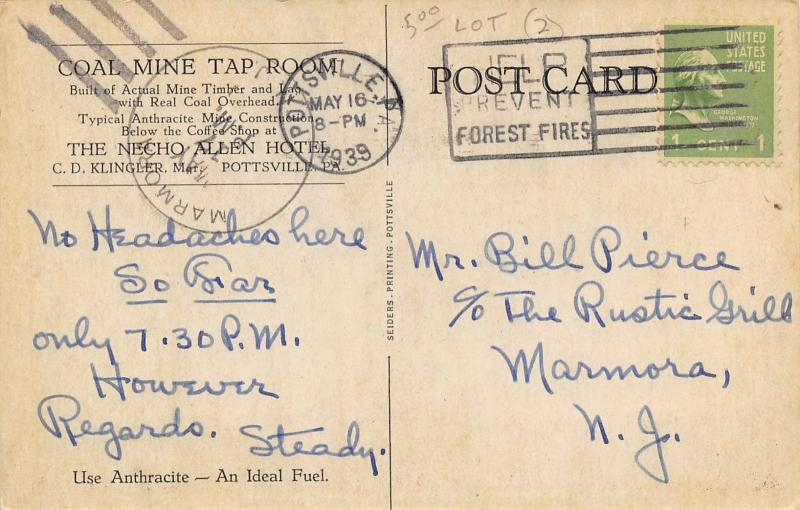 COAL MINE TAP ROOM
Built of Actual Mine Timber and Lag
with Real Coal Overhead.
Typical Anthracite Mine Construction
Below the Coffee Shop at
THE NECHO ALLEN HOTEL
C. D. KLINGLER, Mgr. POTTSVILLE, PA.
POTTSVILLE, PA.
MAY 16
8-PM
1939
MARMORA
MAY
No Headaches here
So Far
only 7.30 P.M.
However
Regards. Steady.
Use Anthracite — An Ideal Fuel.
SEIDERS · PRINTING · POTTSVILLE
5.00 LOT (2)
POST CARD
HELP
PREVENT
FOREST FIRES
UNITED
STATES
POSTAGE
GEORGE
WASHINGTON
1 CENT 1
Mr. Bill Pierce
c/o The Rustic Grill
Marmora,
N. J.